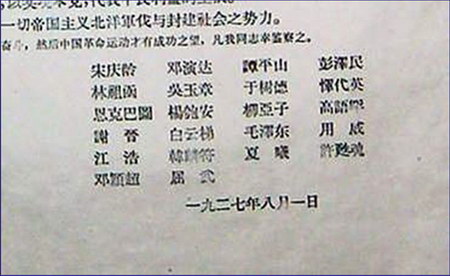 一切帝国主义北洋軍伐与封建社会之势力。
奋斗，然后中国革命运动才有成功之望，凡我同志幸鉴察之。
宋庆龄 邓演达 譚平山 彭澤民
林祖涵 吳玉章 于树德 惲代英
恩克巴圖 楊匏安 柳亞子 高語罕
謝晋 白云梯 毛澤东 用威
江浩 韓麟符 夏曦 許甦魂
邓穎超 屈武
一九二七年八月一日